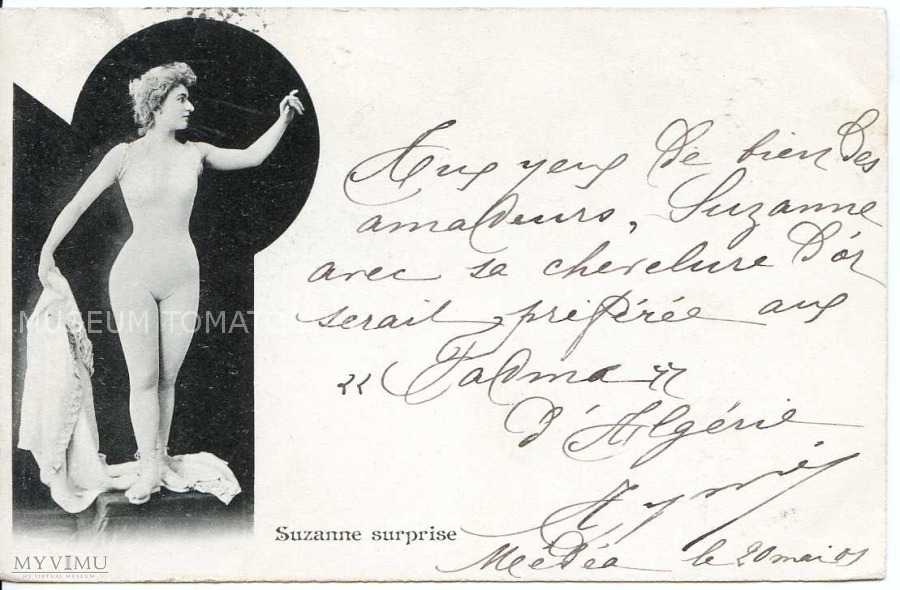 Aux yeux de bien des
amateurs, Suzanne
avec sa chevelure d'or
serait préférée aux
"Fadma"
d'Algérie
Aymé
Médéa le 20 mai 01
Suzanne surprise
MUSEUM TOMATO
MYVIMU
MY VIRTUAL MUSEUM